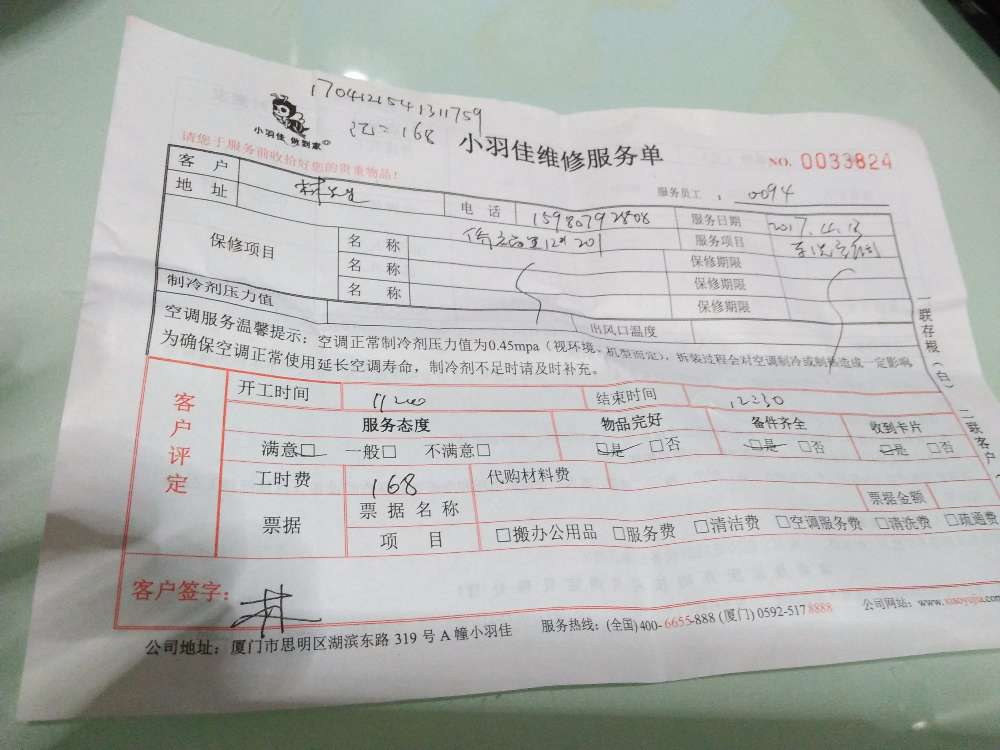 1704121541311759
168
小羽佳 做到家
小羽佳维修服务单
NO. 0033824
请您于服务前收拾好您的贵重物品!
服务员工： 0094
客户 林先生 电话 15980792808 服务日期 2017.4.13
地址 服务项目
保修项目 名称 保修期限
名称 保修期限
名称 保修期限
制冷剂压力值 出风口温度
空调服务温馨提示：空调正常制冷剂压力值为0.45mpa（视环境、机型而定），拆装过程会对空调制冷或制热造成一定影响
为确保空调正常使用延长空调寿命，制冷剂不足时请及时补充。
一联存根（白）
二联客户
客户评定
开工时间 结束时间 12:30
服务态度 物品完好 备件齐全 收到卡片
满意□ 一般□ 不满意□ □是 □否 □是 □否 □是 □否
工时费 168 代购材料费
票据 票据名称 票据金额
项目 □搬办公用品 □服务费 □清洁费 □空调服务费 □清洗费 □疏通费
客户签字：
公司地址：厦门市思明区湖滨东路 319 号 A 幢小羽佳 服务热线：(全国)400-6655-888 (厦门) 0592-5178888 公司网站：www.xiaoyujia.com